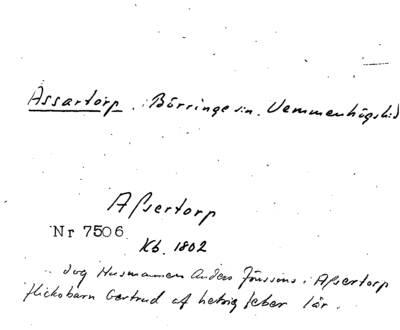 Assartorp. Börringe sn. Vemmenhögs hd
Aßertorp
Nr 7506
Kb. 1802
dog Husmannen Anders Jönssons i Aßertorp
flickobarn Gertrud af hetsig feber 1 år.